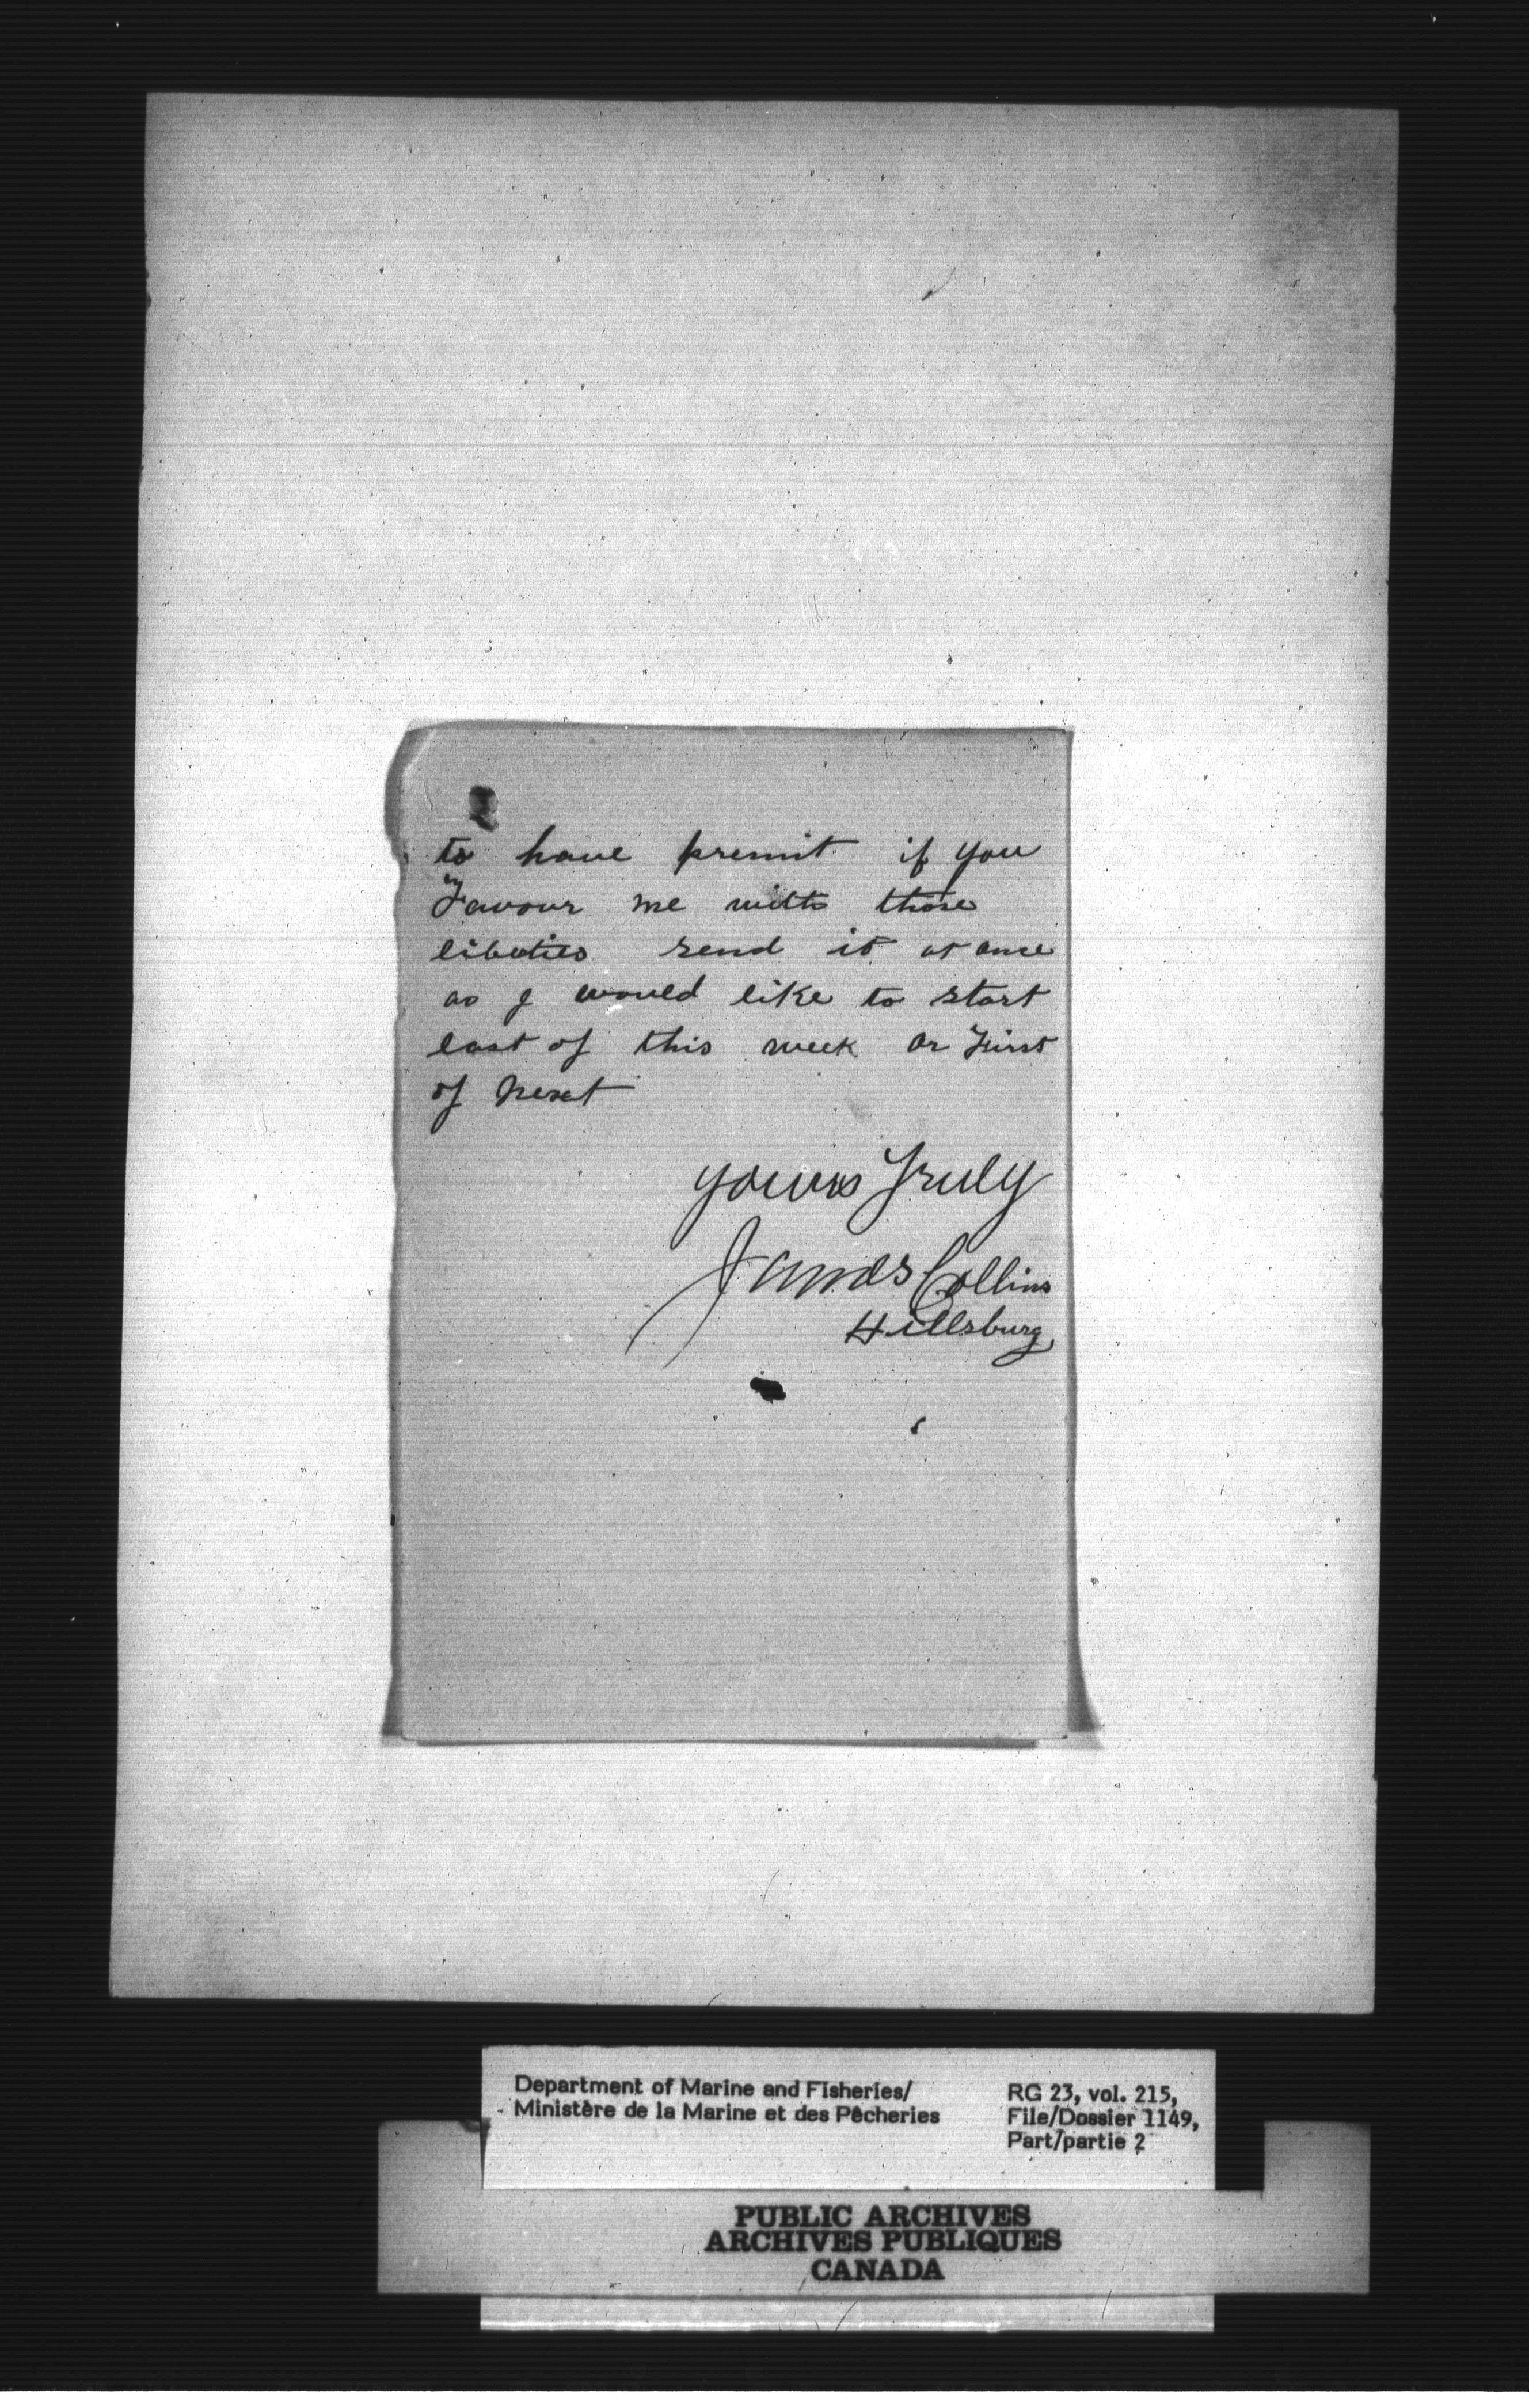 to have premit if you
Favour me with those
libeties send it at once
as I would like to start
last of this week or First
of Next
yours Truly
James Collins
Hillsburg
Department of Marine and Fisheries/
Ministère de la Marine et des Pêcheries
RG 23, vol. 215,
File/Dossier 1149,
Part/partie 2
PUBLIC ARCHIVES
ARCHIVES PUBLIQUES
CANADA